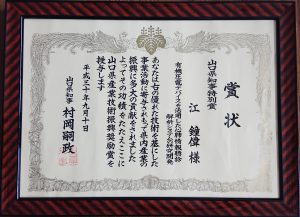 賞状
山口県知事特別賞
有機圧電デバイスを活用した心肺情報聴診
解析システムの研究開発
江 鐘偉 様
あなたは右の優れた技術を基にした
事業活動に寄与されもって県内産業の
振興に多大の貢献をされました
よってその功績をたたえここに
山口県産業技術振興奨励賞を
授与します
平成三十年九月十日
山口県知事 村岡嗣政